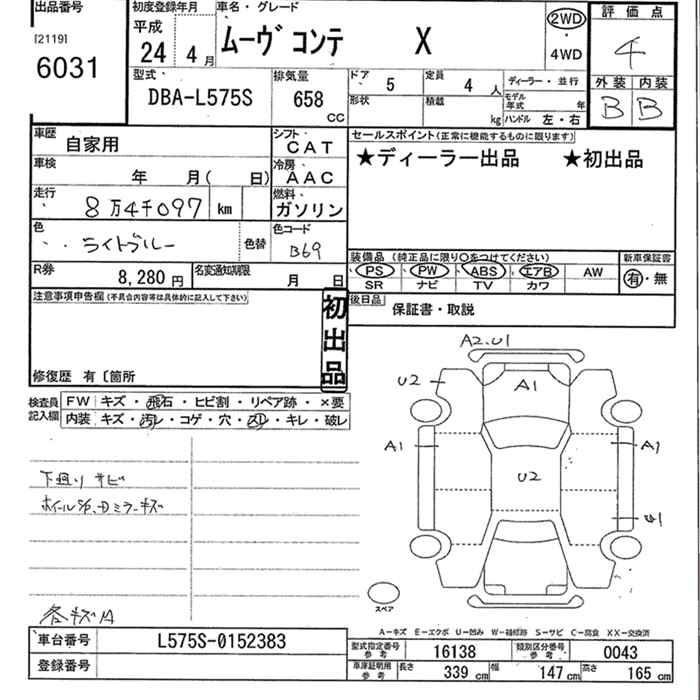 出品番号
[2119]
6031
初度登録年月
平成
24 4月
車名・グレード
ムーヴ コンテ X
2WD
4WD
評価点
4
外装 内装
B B
型式
DBA-L575S
排気量
658 CC
ドア 5
定員 4人
形状
積載 kg
ディーラー・並行
モデル年式 年
ハンドル 左・右
車歴 自家用
シフト CAT
車検 年 月( 日)
冷房 AAC
走行 8万4千097 km
燃料 ガソリン
色 ライトブルー 色替
色コード B69
R券 8,280円
名変通知期限 月 日
セールスポイント(正常に機能するものに限ります)
★ディーラー出品 ★初出品
装備品 (純正品に限り○をつけてください)
PS PW ABS エアB AW
SR ナビ TV カワ
新車保証書
有・無
後日品 保証書・取説
注意事項申告欄(不具合内容等は具体的に記入して下さい)
初出品
修復歴 有〔箇所
検査員記入欄
FW キズ・飛石・ヒビ割・リペア跡・×要
内装 キズ・汚レ・コゲ・穴・スレ・キレ・破レ
下廻りサビ
各キズA
A2.U1
U2
A1
A1
A1
U2
スペア
A-キズ E-エクボ U-凹み W-補修跡 S-サビ C-腐食 XX-交換済
車台番号 L575S-0152383
登録番号
型式指定番号 参考 16138
類別区分番号 参考 0043
車庫証明用 参考 長さ 339cm 幅 147cm 高さ 165cm